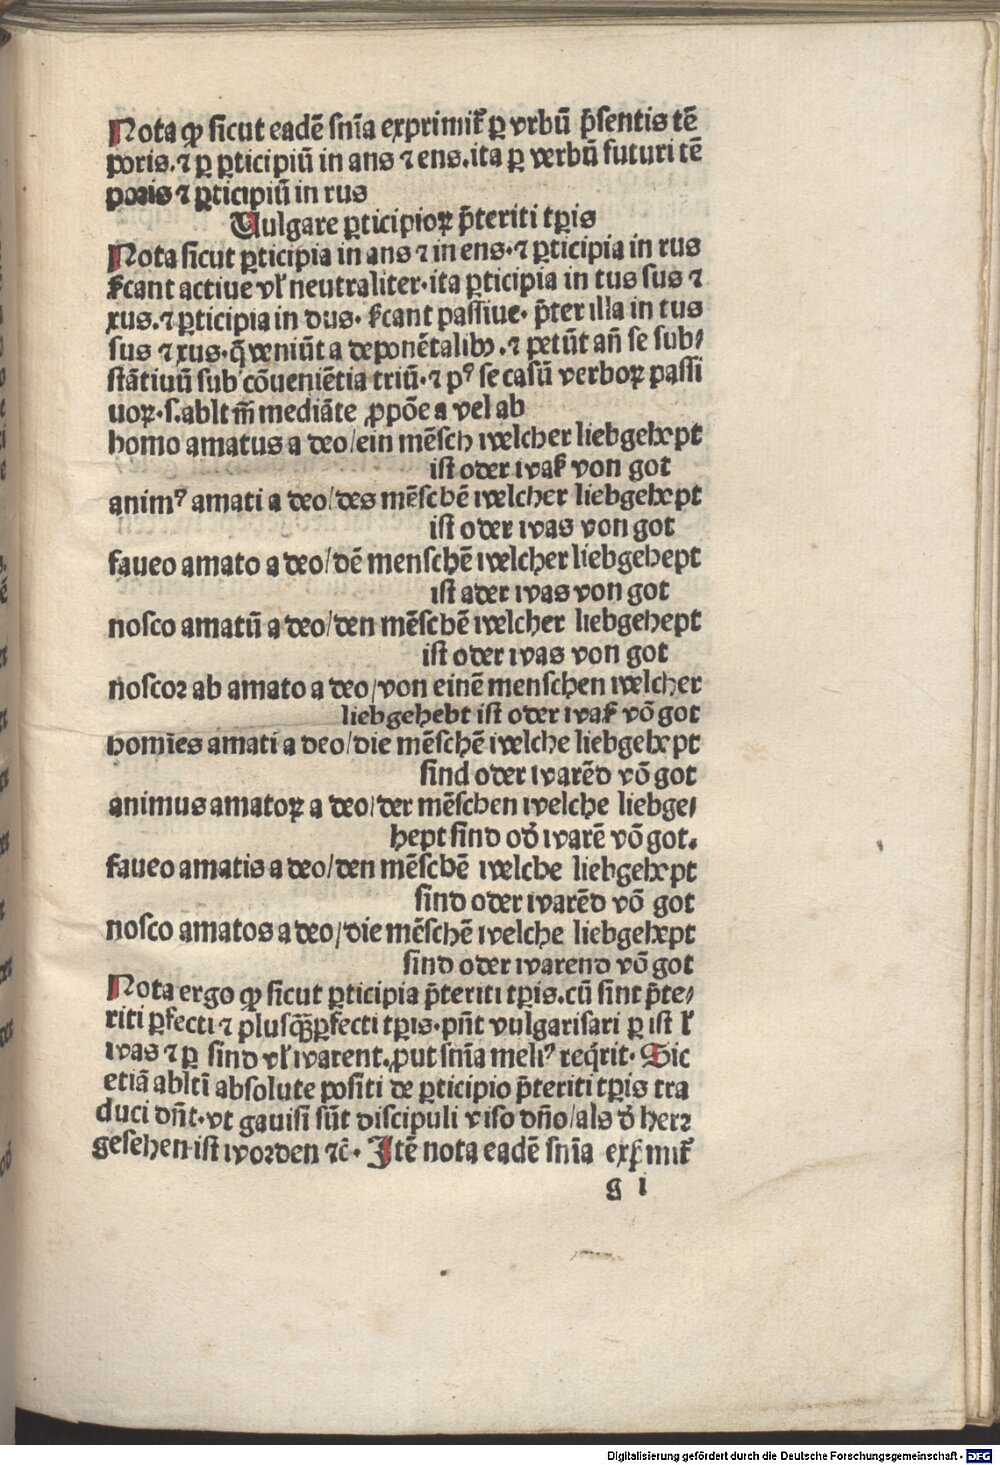 Nota ꝙ ſicut eadē ſnīa exprimit᷑ ꝑ vrbū p̄ſentis tē
poris.⁊ ꝑ ꝑticipiū in ans ⁊ ens.ita ꝑ verbū futuri tē
poris ⁊ ꝑticipiū in rus
Vulgare ꝑticipioꝝ p̄teriti tꝑis
Nota ſicut ꝑticipia in ans ⁊ in ens·⁊ ꝑticipia in rus
ſ̄cant actiue vł neutraliter·ita ꝑticipia in tus ſus ⁊
xus.⁊ ꝑticipia in dus· ſ̄cant paſſiue· p̄ter illa in tus
ſus ⁊ xus·q̄ veniūt a deponētalibꝫ.⁊ petūt an̄ ſe ſub⸗
ſtātiuū ſub cōueniētia triū·⁊ pꝰ ſe caſū verboꝝ paſſi
uoꝝ·ſ.ablt m̄ mediāte ꝓpōe a vel ab
homo amatus a deo/ein mēſch welcher liebgehept
iſt oder waſ von got
animꝰ amati a deo/des mēſchē welcher liebgehept
iſt oder was von got
faueo amato a deo/dē menſchē welcher liebgehept
iſt ader was von got
noſco amatū a deo/den mēſchē welcher liebgehept
iſt oder was von got
noſcoꝛ ab amato a deo/von einē menſchen welcher
liebgehebt iſt oder waſ vō got
homīes amati a deo/die mēſchē welche liebgehept
ſind oder warēd vō got
animus amatoꝝ a deo/der mēſchen welche liebge⸗
hept ſind od̓ warē vō got.
faueo amatis a deo/den mēſchē welche liebgehept
ſind oder warēd vō got
noſco amatos a deo/die mēſchē welche liebgehept
ſind oder warend vō got
Nota ergo ꝙ ſicut ꝑticipia p̄teriti tꝑis.cū ſint p̄te⸗
riti ꝑfecti ⁊ pluſqꝫꝑfecti tꝑis·pn̄t vulgariſari ꝑ iſt ł
was ⁊ ꝑ ſind vł warent.ꝓut ſnīa meliꝰ reqͥrit· Sic
etiā abltī abſolute poſiti de ꝑticipio p̄teriti tꝑis tra
duci dn̄t·vt gauiſi ſūt diſcipuli viſo dn̄o/als d̓ herꝛ
geſehen iſt woꝛden ⁊c̄· Itē nota eadē ſnīa exp̄mit᷑
g i
Digitalisierung gefördert durch die Deutsche Forschungsgemeinschaft - DFG